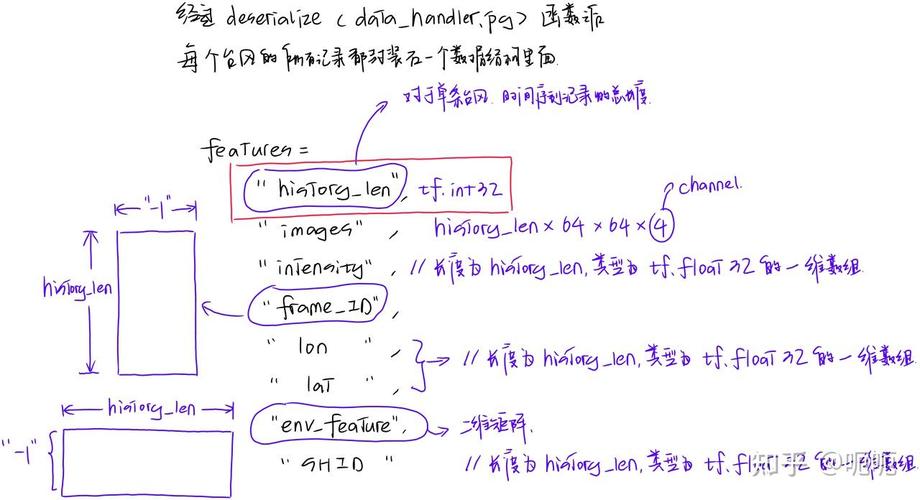 经过 deserialize (data_handler.py) 函数后
每个台风的所有记录都封装在一个数据结构里面.
对于单条台风. 时间序列记录的总长度.
features =
"history_len", tf.int32
channel.
"images", history_len × 64 × 64 × 4
"-1"
"intensity", // 长度为 history_len, 类型为 tf.float32 的一维数组.
history_len
"frame_ID",
"lon ",
// 长度为 history_len, 类型为 tf.float32 的一维数组.
"lat ",
history_len
"env_feature", 二维矩阵.
"-1"
"SHID " // 长度为 history_len, 类型为 tf.float32 的一维数组.
知乎 @呃呃